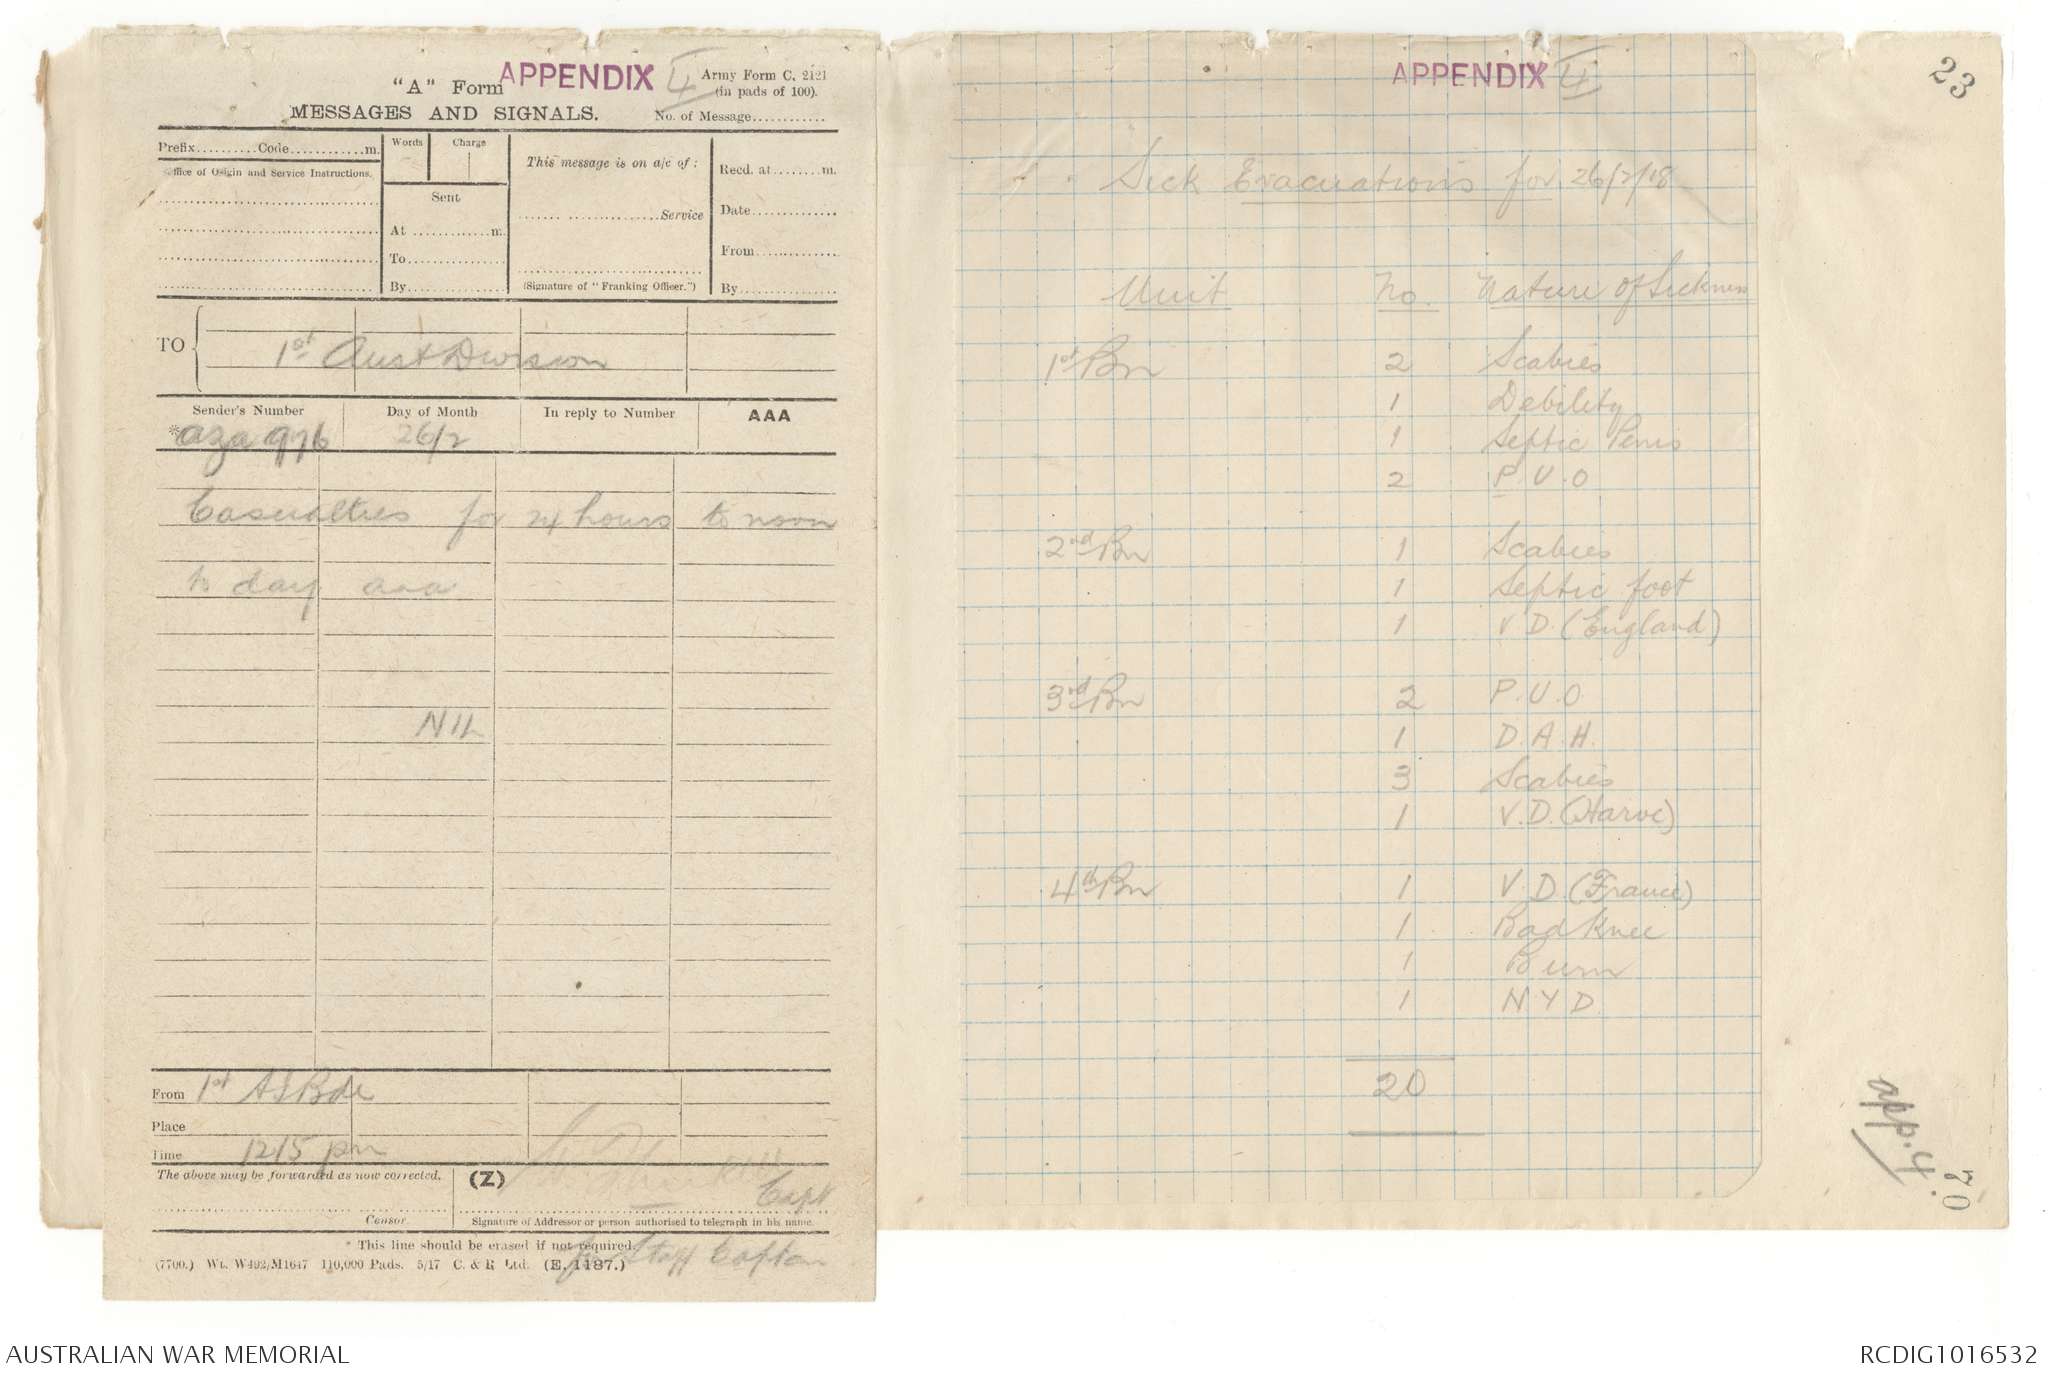 "A" Form
APPENDIX 4
Army Form C. 2121
(in pads of 100).
MESSAGES AND SIGNALS.
No. of Message............
Prefix..........Code............m.
Words
Charge
This message is on a/c of :
Recd. at........m.
Office of Origin and Service Instructions.
Sent
Service
Date..............
At .............m.
To................
From..............
By................
(Signature of "Franking Officer.")
By................
TO
1st Aust Division
Sender's Number
Day of Month
In reply to Number
AAA
*aza 976
26/2
Casualties for 24 hours to noon
to day aaa
NIL
From 1st A I Bde
Place
Time 1215 pm
The above may be forwarded as now corrected.
(Z)
Capt
Censor.
Signature of Addressor or person authorised to telegraph in his name.
* This line should be erased if not required.
for Staff Captain
(7700.) Wt. W492/M1647 110,000 Pads. 5/17 C. & R. Ltd. (E. 1187.)
APPENDIX 4
23
Sick Evacuations for 26/2/18
Unit No. Nature of Sickness
1st Bn 2 Scabies
1 Debility
1 Septic Penis
2 P.U.O
2nd Bn 1 Scabies
1 Septic foot
1 V.D. (England)
3rd Bn 2 P.U.O
1 D.A.H.
3 Scabies
1 V.D. (Harve)
4th Bn 1 V.D. (France)
1 Bad Knee
1 Burn
1 N Y D
20
app. 4.
70
AUSTRALIAN WAR MEMORIAL
RCDIG1016532